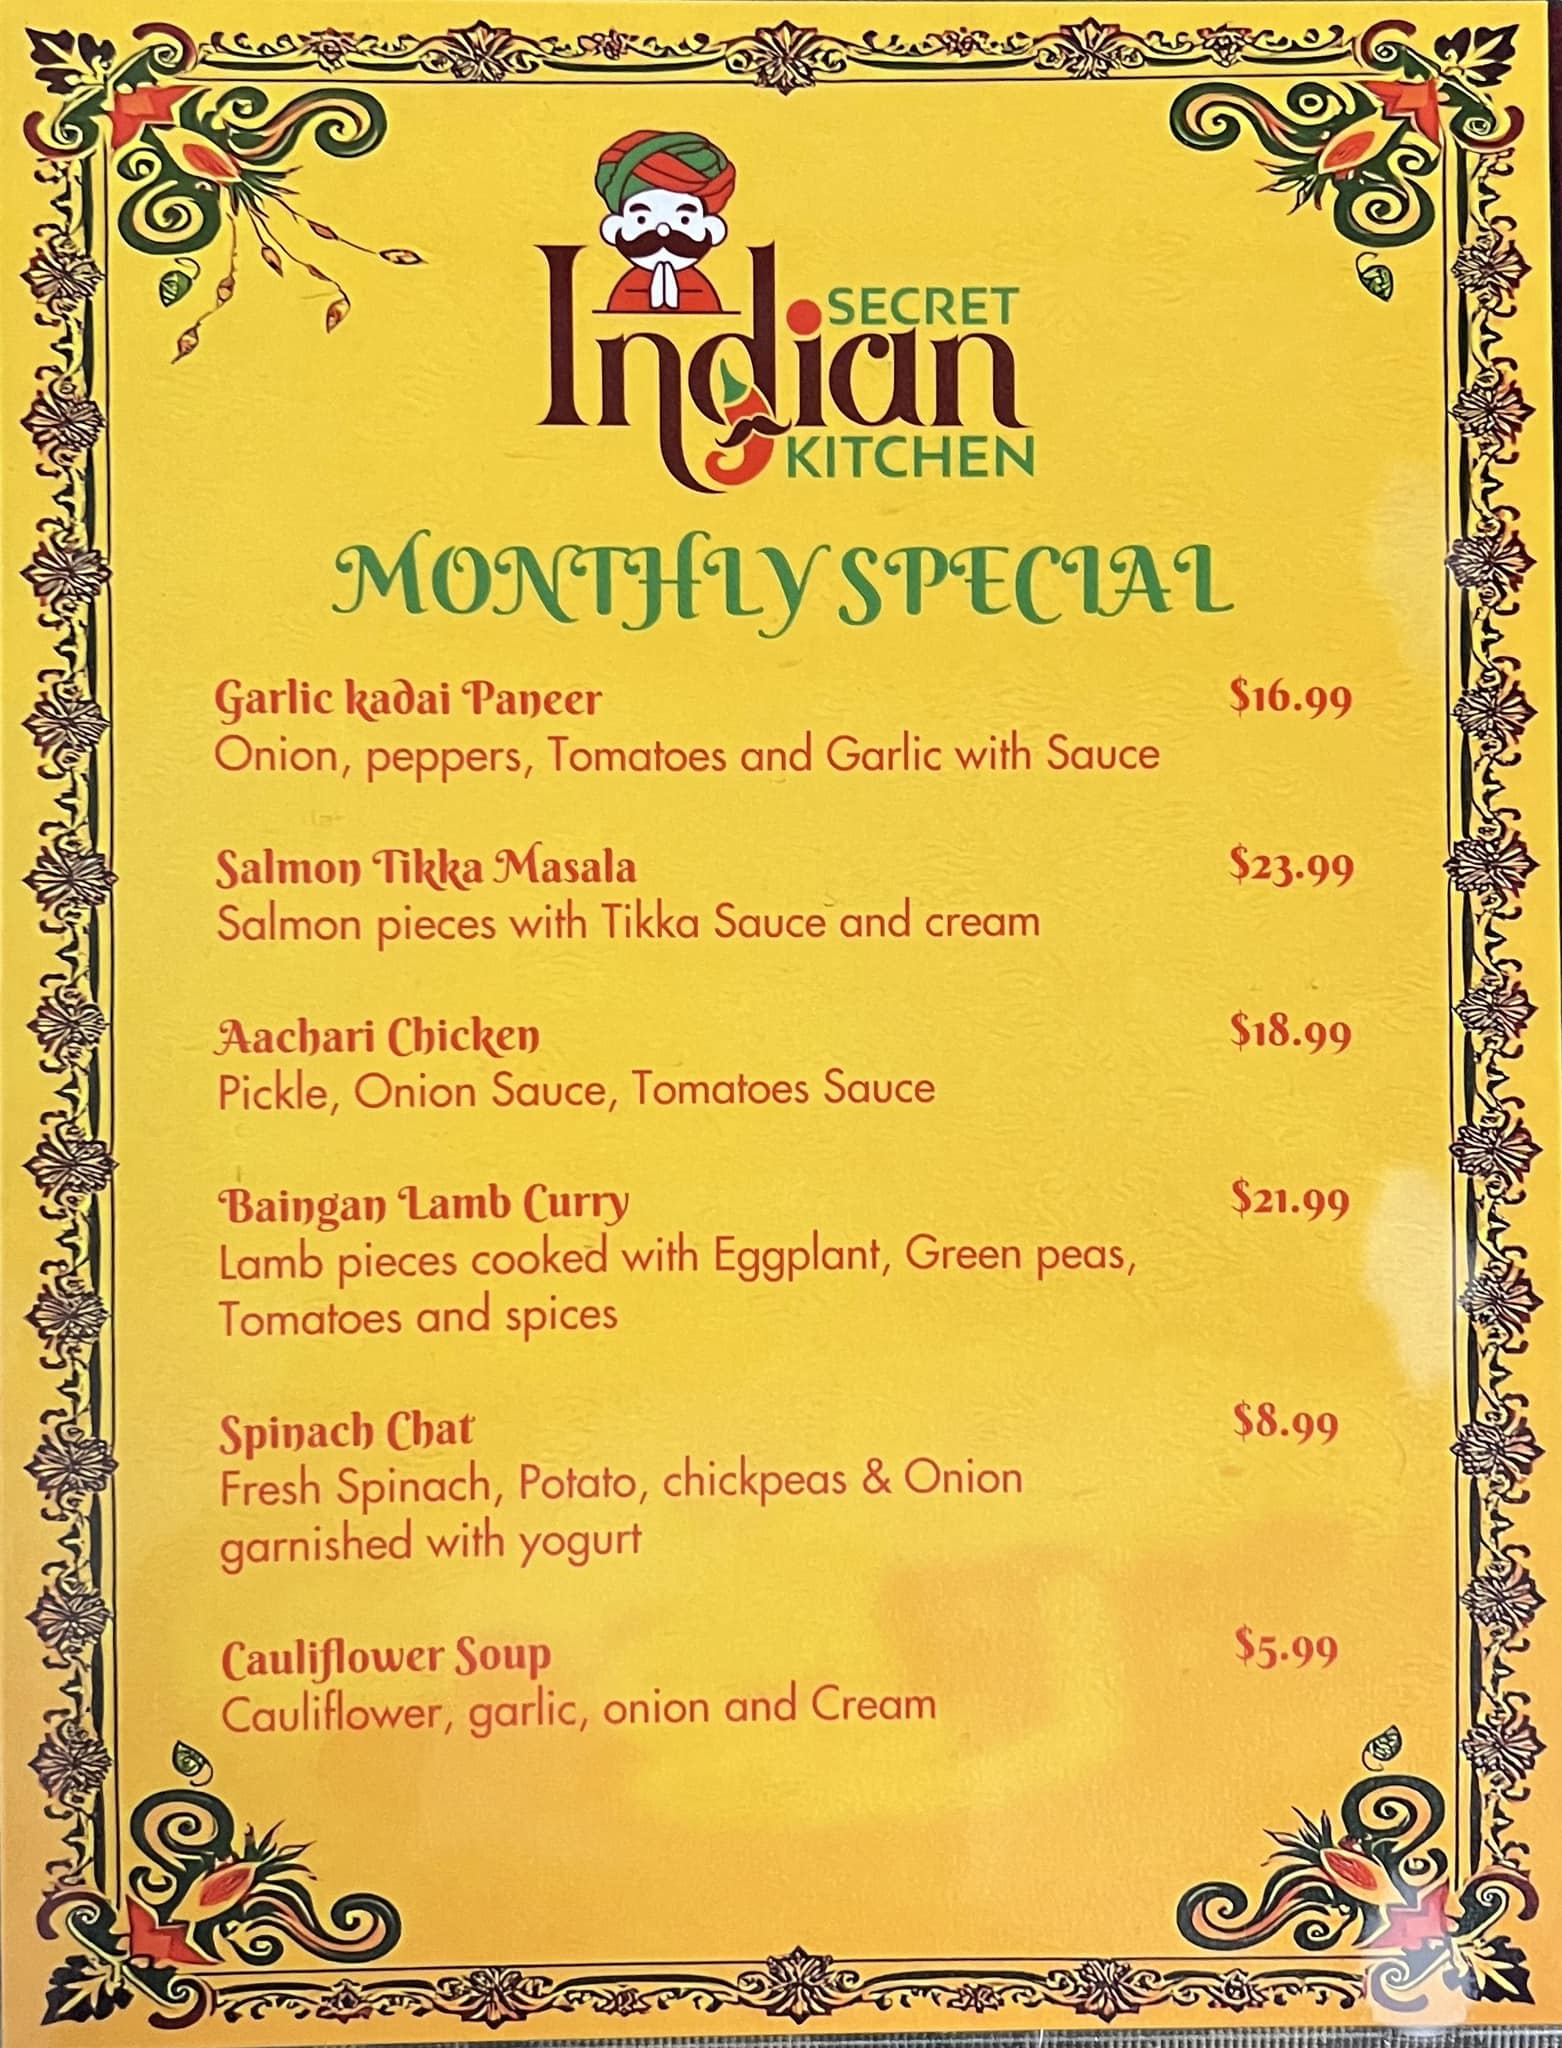 SECRET
Indian
KITCHEN
MONTHLY SPECIAL
Garlic kadai Paneer $16.99
Onion, peppers, Tomatoes and Garlic with Sauce
Salmon Tikka Masala $23.99
Salmon pieces with Tikka Sauce and cream
Aachari Chicken $18.99
Pickle, Onion Sauce, Tomatoes Sauce
Baingan Lamb Curry $21.99
Lamb pieces cooked with Eggplant, Green peas,
Tomatoes and spices
Spinach Chat $8.99
Fresh Spinach, Potato, chickpeas & Onion
garnished with yogurt
Cauliflower Soup $5.99
Cauliflower, garlic, onion and Cream